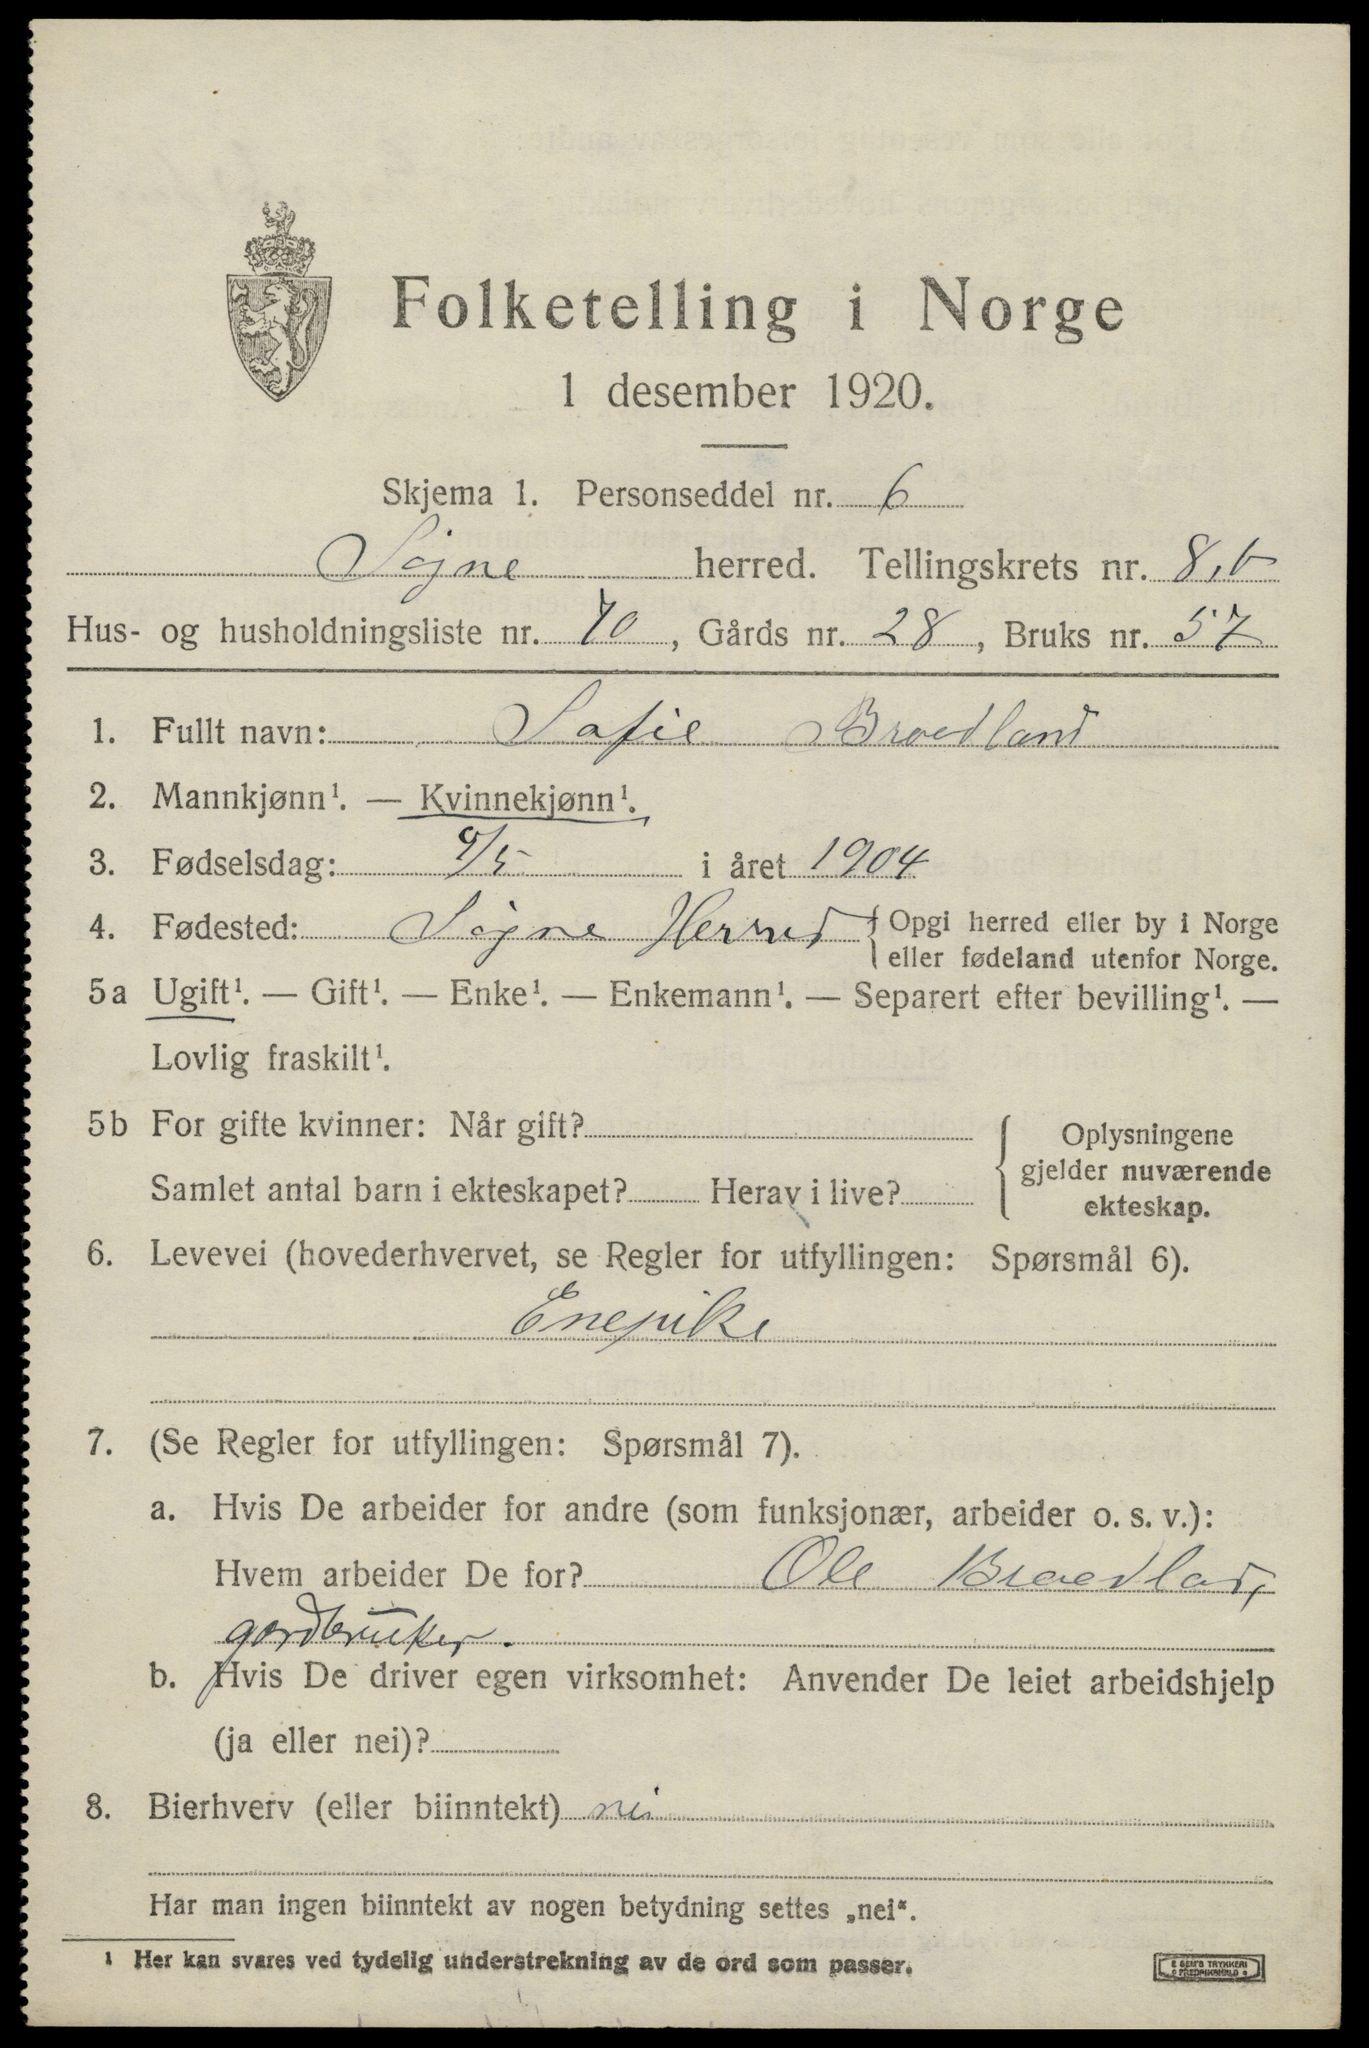 Folketelling i Norge
1 desember 1920.
Skjema 1. Personseddel nr. 6
Søgne herred. Tellingskrets nr. 8,b
Hus- og husholdningsliste nr. 70, Gårds nr. 28, Bruks nr. 57
1. Fullt navn: Sofie Broedland
2. Mannkjønn¹. — Kvinnekjønn¹.
3. Fødselsdag: 9/5 i året 1904
4. Fødested: Søgne Herred { Opgi herred eller by i Norge
eller fødeland utenfor Norge.
5a Ugift¹. — Gift¹. — Enke¹. — Enkemann¹. — Separert efter bevilling¹. —
Lovlig fraskilt¹.
5b For gifte kvinner: Når gift? { Oplysningene
gjelder nuværende
Samlet antal barn i ekteskapet? Herav i live?
ekteskap.
6. Levevei (hovederhvervet, se Regler for utfyllingen: Spørsmål 6).
Enepike
7. (Se Regler for utfyllingen: Spørsmål 7).
a. Hvis De arbeider for andre (som funksjonær, arbeider o. s. v.):
Hvem arbeider De for? Ole Broedlad,
gordbruker.
b. Hvis De driver egen virksomhet: Anvender De leiet arbeidshjelp
(ja eller nei)?
8. Bierhverv (eller biinntekt) nei
Har man ingen biinntekt av nogen betydning settes „nei“.
¹ Her kan svares ved tydelig understrekning av de ord som passer.
E SEM'S TRYKKERI
FREDRIKSHALD